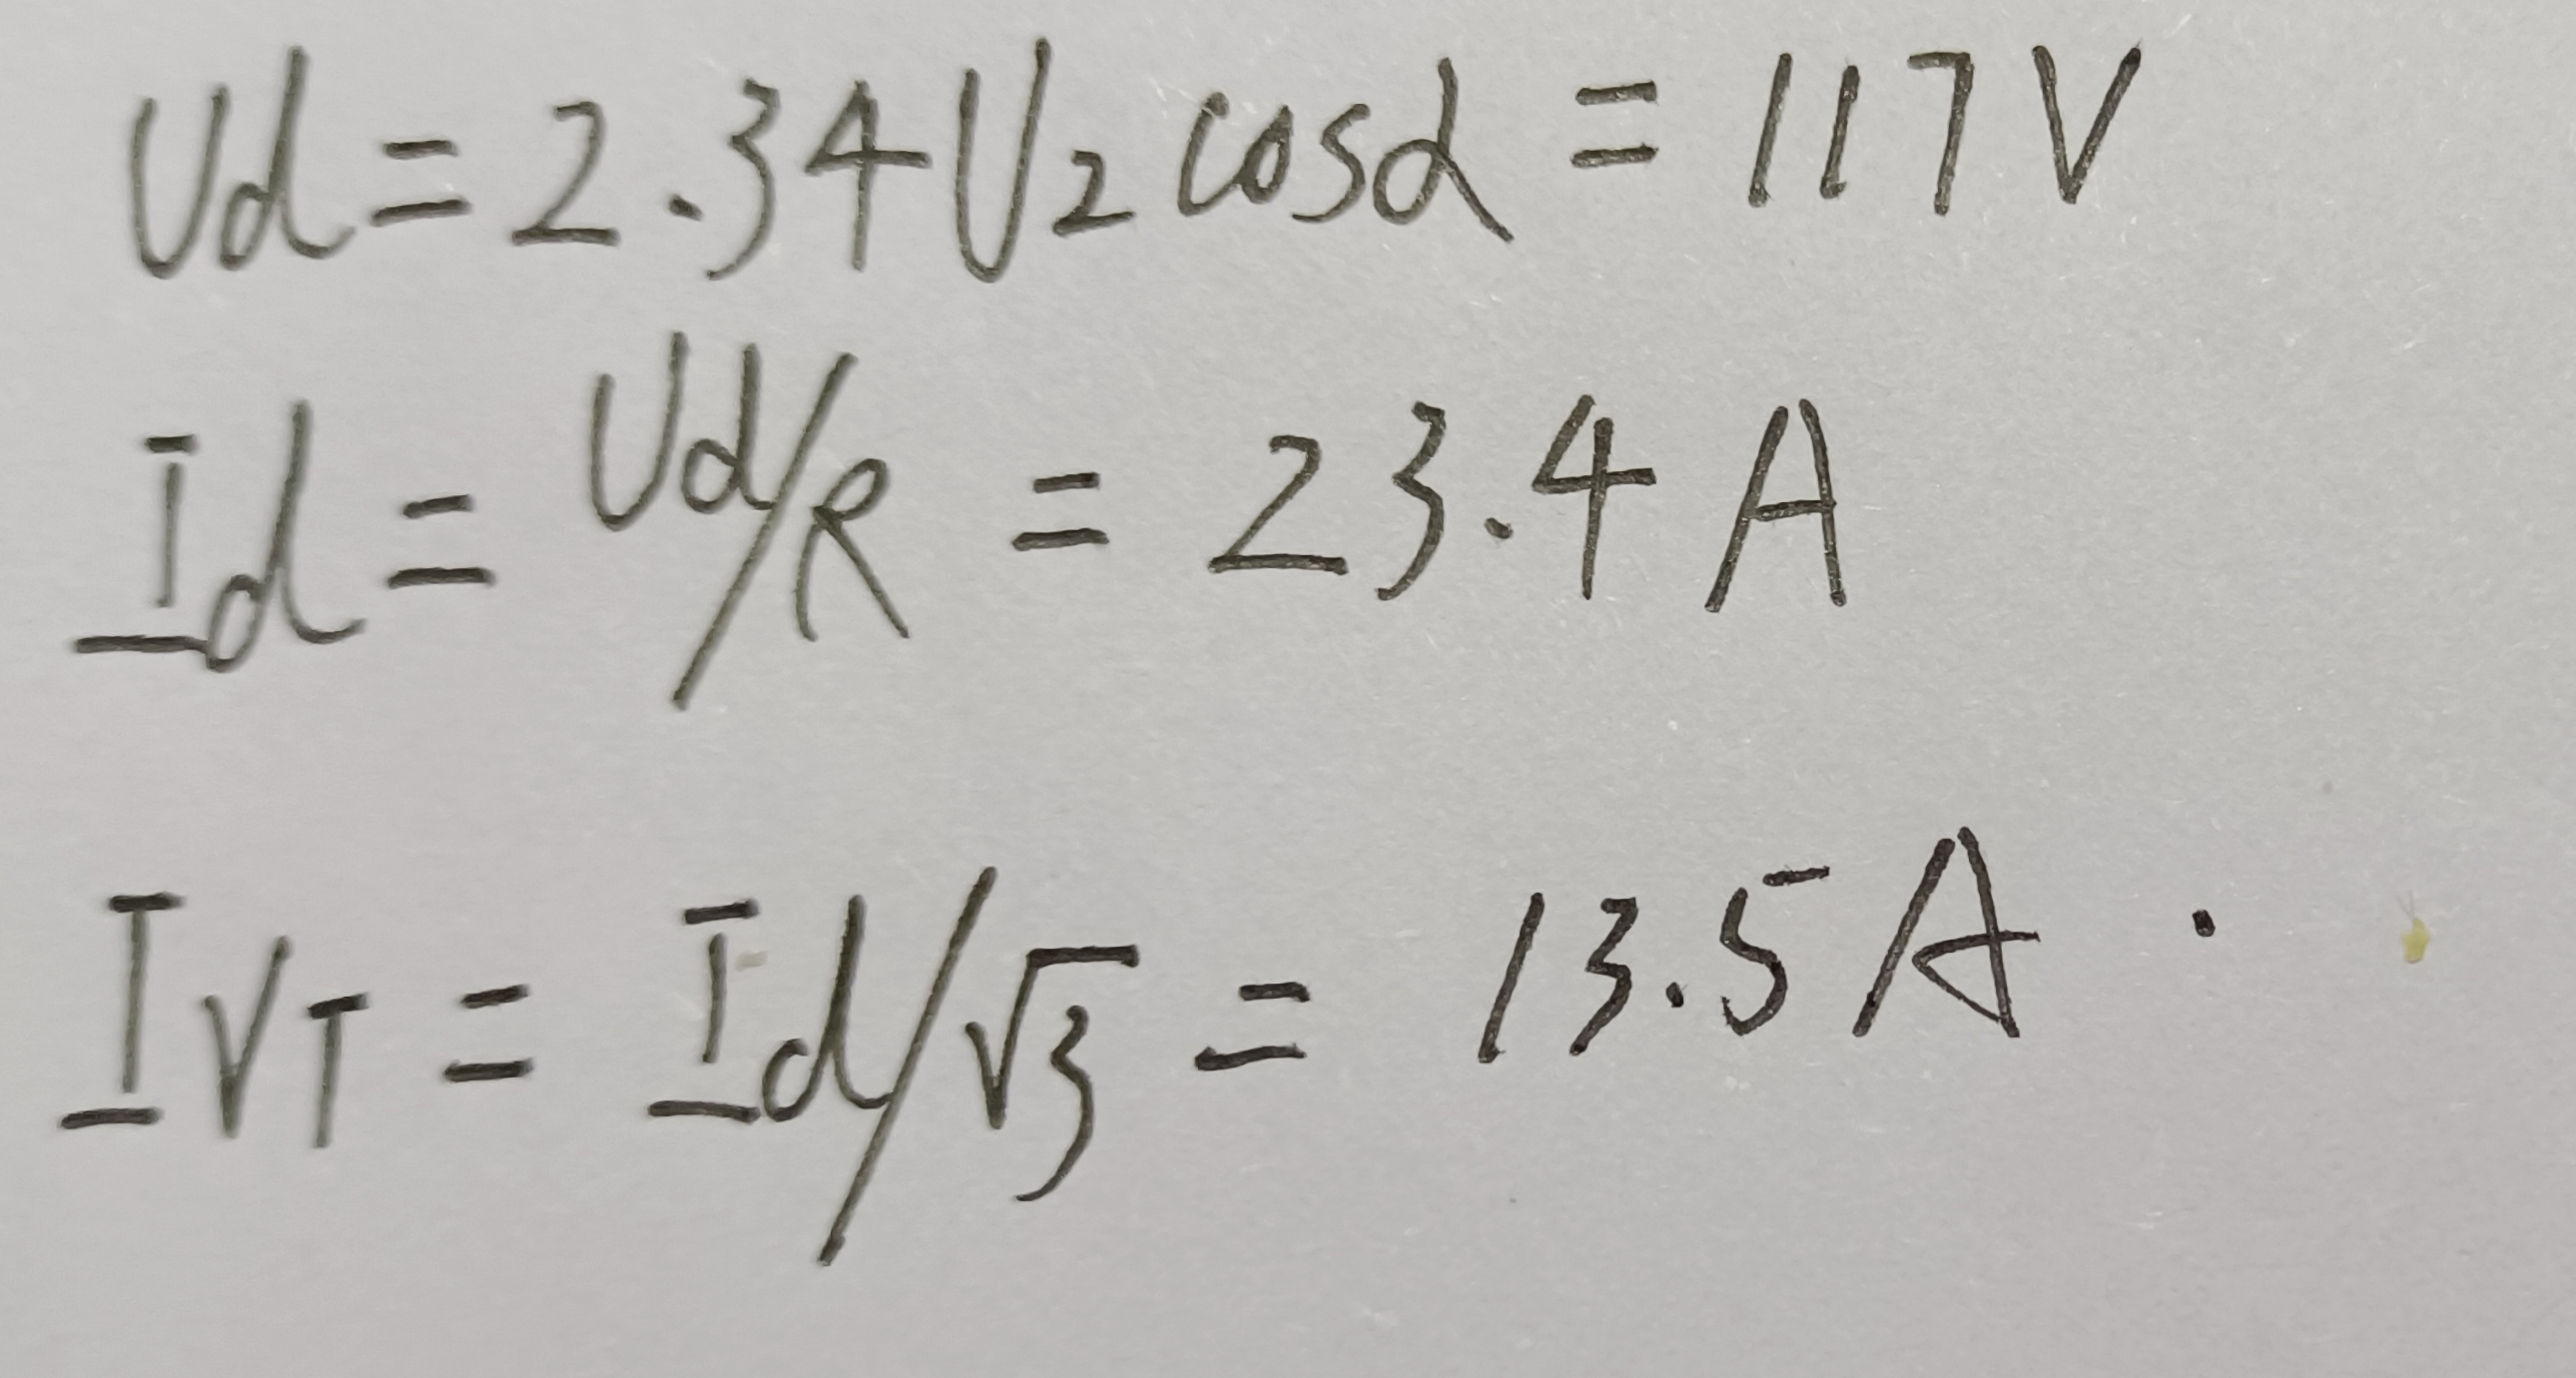 Ud = 2.34 U₂ cosα = 117 V
Id = Ud/R = 23.4 A
IVT = Id/√3 = 13.5 A .